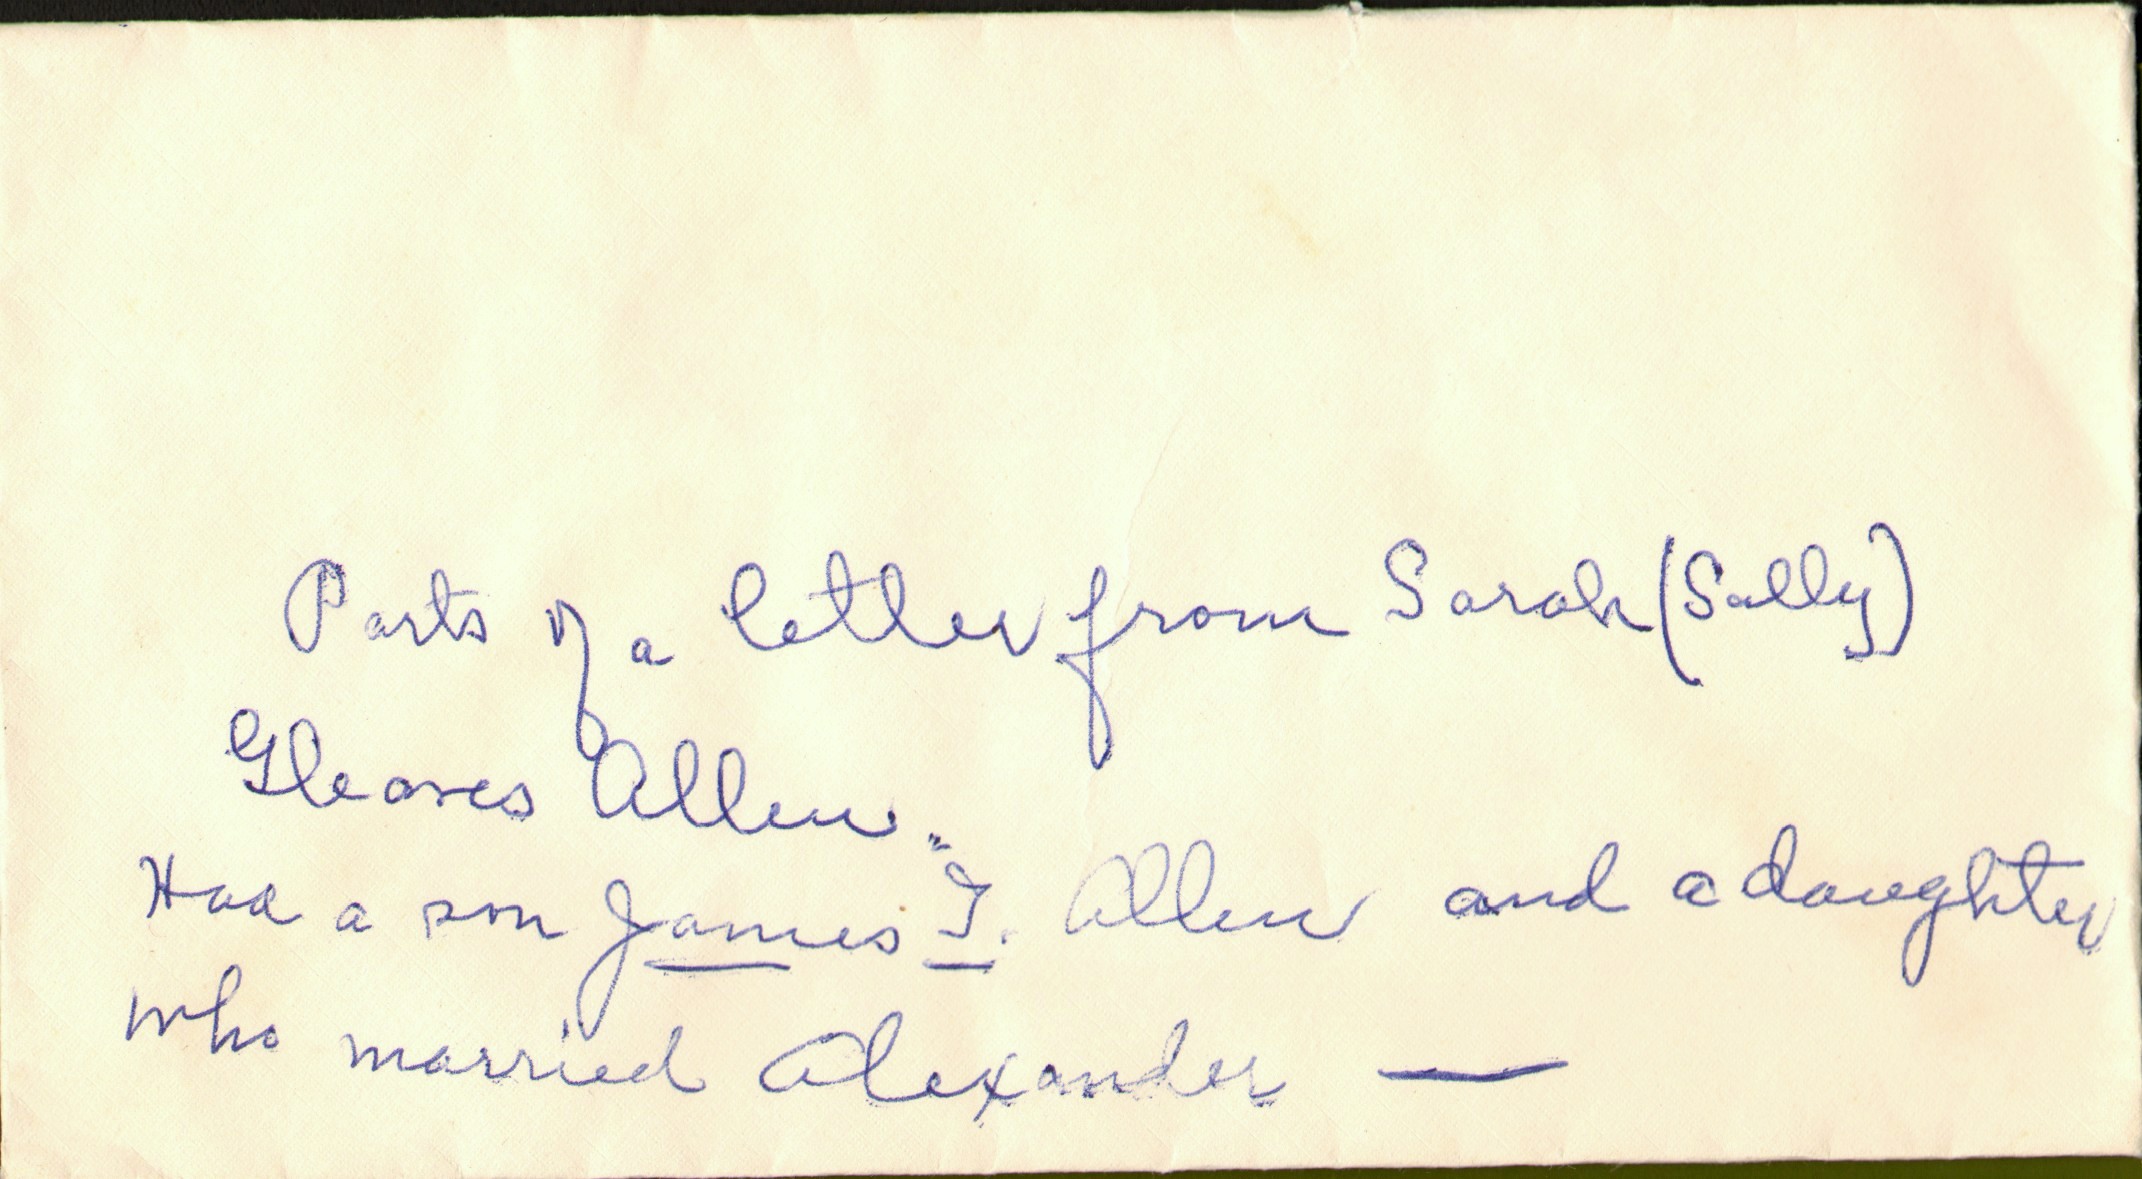 Parts of a letter from Sarah (Sally)
Gleaves Allen.
Had a son James "T. Allen and a daughter
who married Alexander —